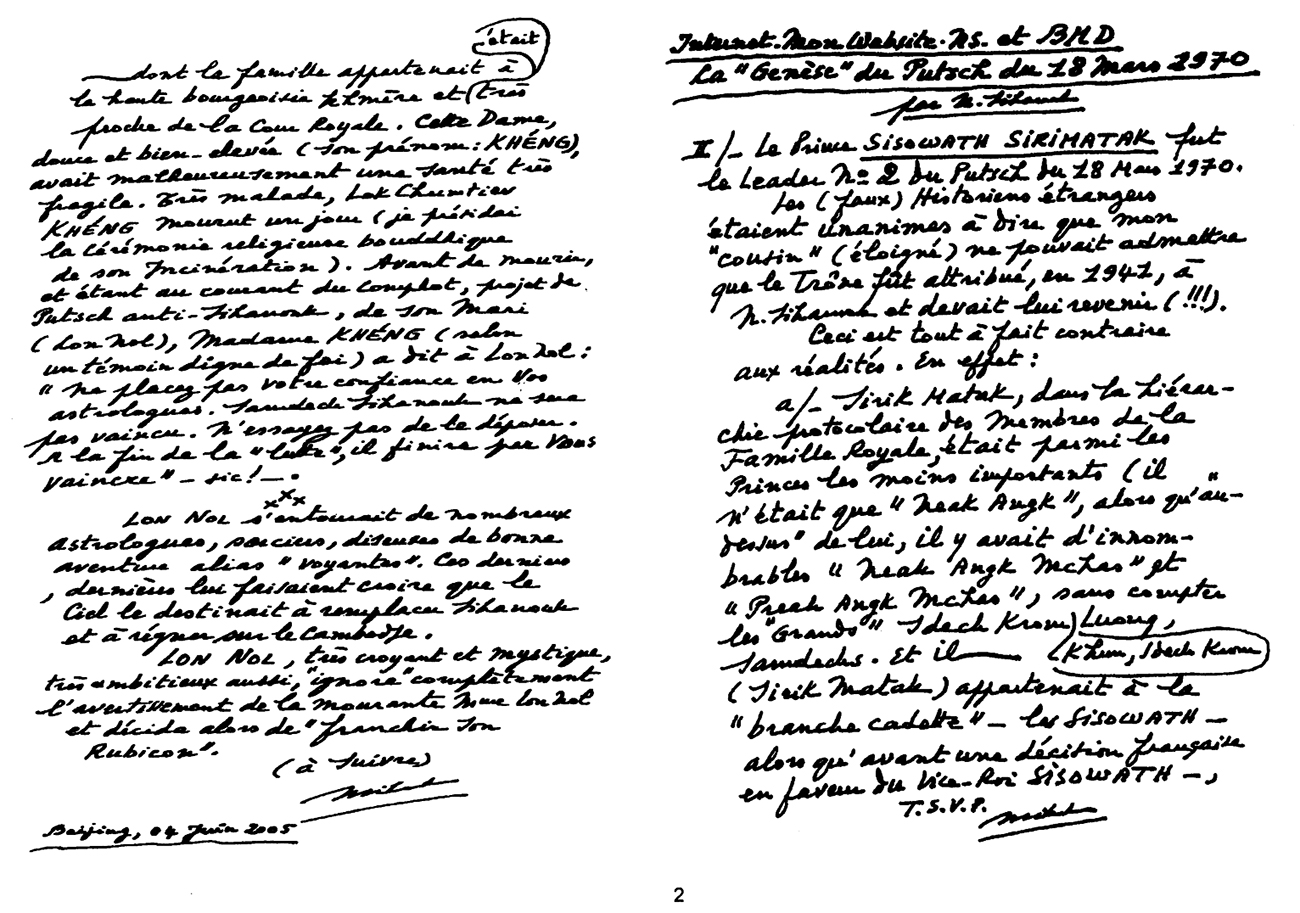 était
dont la famille appartenait à
la haute bourgeoisie khmère et très
proche de la Cour Royale. Cette Dame,
douce et bien-elevée (son prénom : KHÉNG),
avait malheureusement une santé très
fragile. Très malade, Lok Chumtiev
KHÉNG mourut un jour (je présidai
la cérémonie religieuse bouddhique
de son Incinération). Avant de mourir,
et étant au courant du complot, projet de
Putsch anti-Sihanouk, de son Mari
(Lon Nol), Madame KHÉNG (selon
un témoin digne de foi) a dit à Lon Nol :
" Ne placez pas votre confiance en Vos
astrologues. Samdech Sihanouk ne sera
pas vaincu. N'essayez pas de le déposer.
A la fin de la "lutte", il finira par Vous
vaincre" - sic! - .
xxx
LON NOL s'entourait de nombreux
astrologues, sorciers, diseuses de bonne
aventure alias " voyantes". Ces derniers
, dernières lui faisaient croire que le
Ciel le destinait à remplacer Sihanouk
et à régner sur le Cambodge.
LON NOL, très croyant et mystique,
très ambitieux aussi, "ignora" complètement
l'avertissement de la mourante Mme Lon Nol
et décida alors de "franchir son
Rubicon".
(à suivre)
Beijing, 04 Juin 2005
Internet. Mon Website. NS. et BMD
La "Genèse" du Putsch du 18 Mars 1970
par N. Sihanouk
II/- Le Prince SISOWATH SIRIMATAK fut
le Leader No 2 du Putsch du 18 Mars 1970.
Les (faux) Historiens étrangers
étaient unanimes à dire que mon
"cousin" (éloigné) ne pouvait admettre
que le Trône fût attribué, en 1941, à
N. Sihanouk et devait lui revenir (!!!).
Ceci est tout à fait contraire
aux réalités. En effet :
a/- Sirik Matak, dans la hiérar-
chie protocolaire des Membres de la
Famille Royale, était parmi les
Princes les moins importants (il
n'était que " Neak Angk ", alors qu'"au-
dessus" de lui, il y avait d'innom-
brables " Neak Angk Mchas" et
" Preah Angk Mchas", sans compter
les "Grands" Sdech Krom) Luong,
Samdechs. Et il Khun, Sdech Krom
(Sirik Matak) appartenait à la
"branche cadette" - les SISOWATH -
alors qu'avant une décision française
en faveur du Vice-Roi SISOWATH -,
T.S.V.P.
2